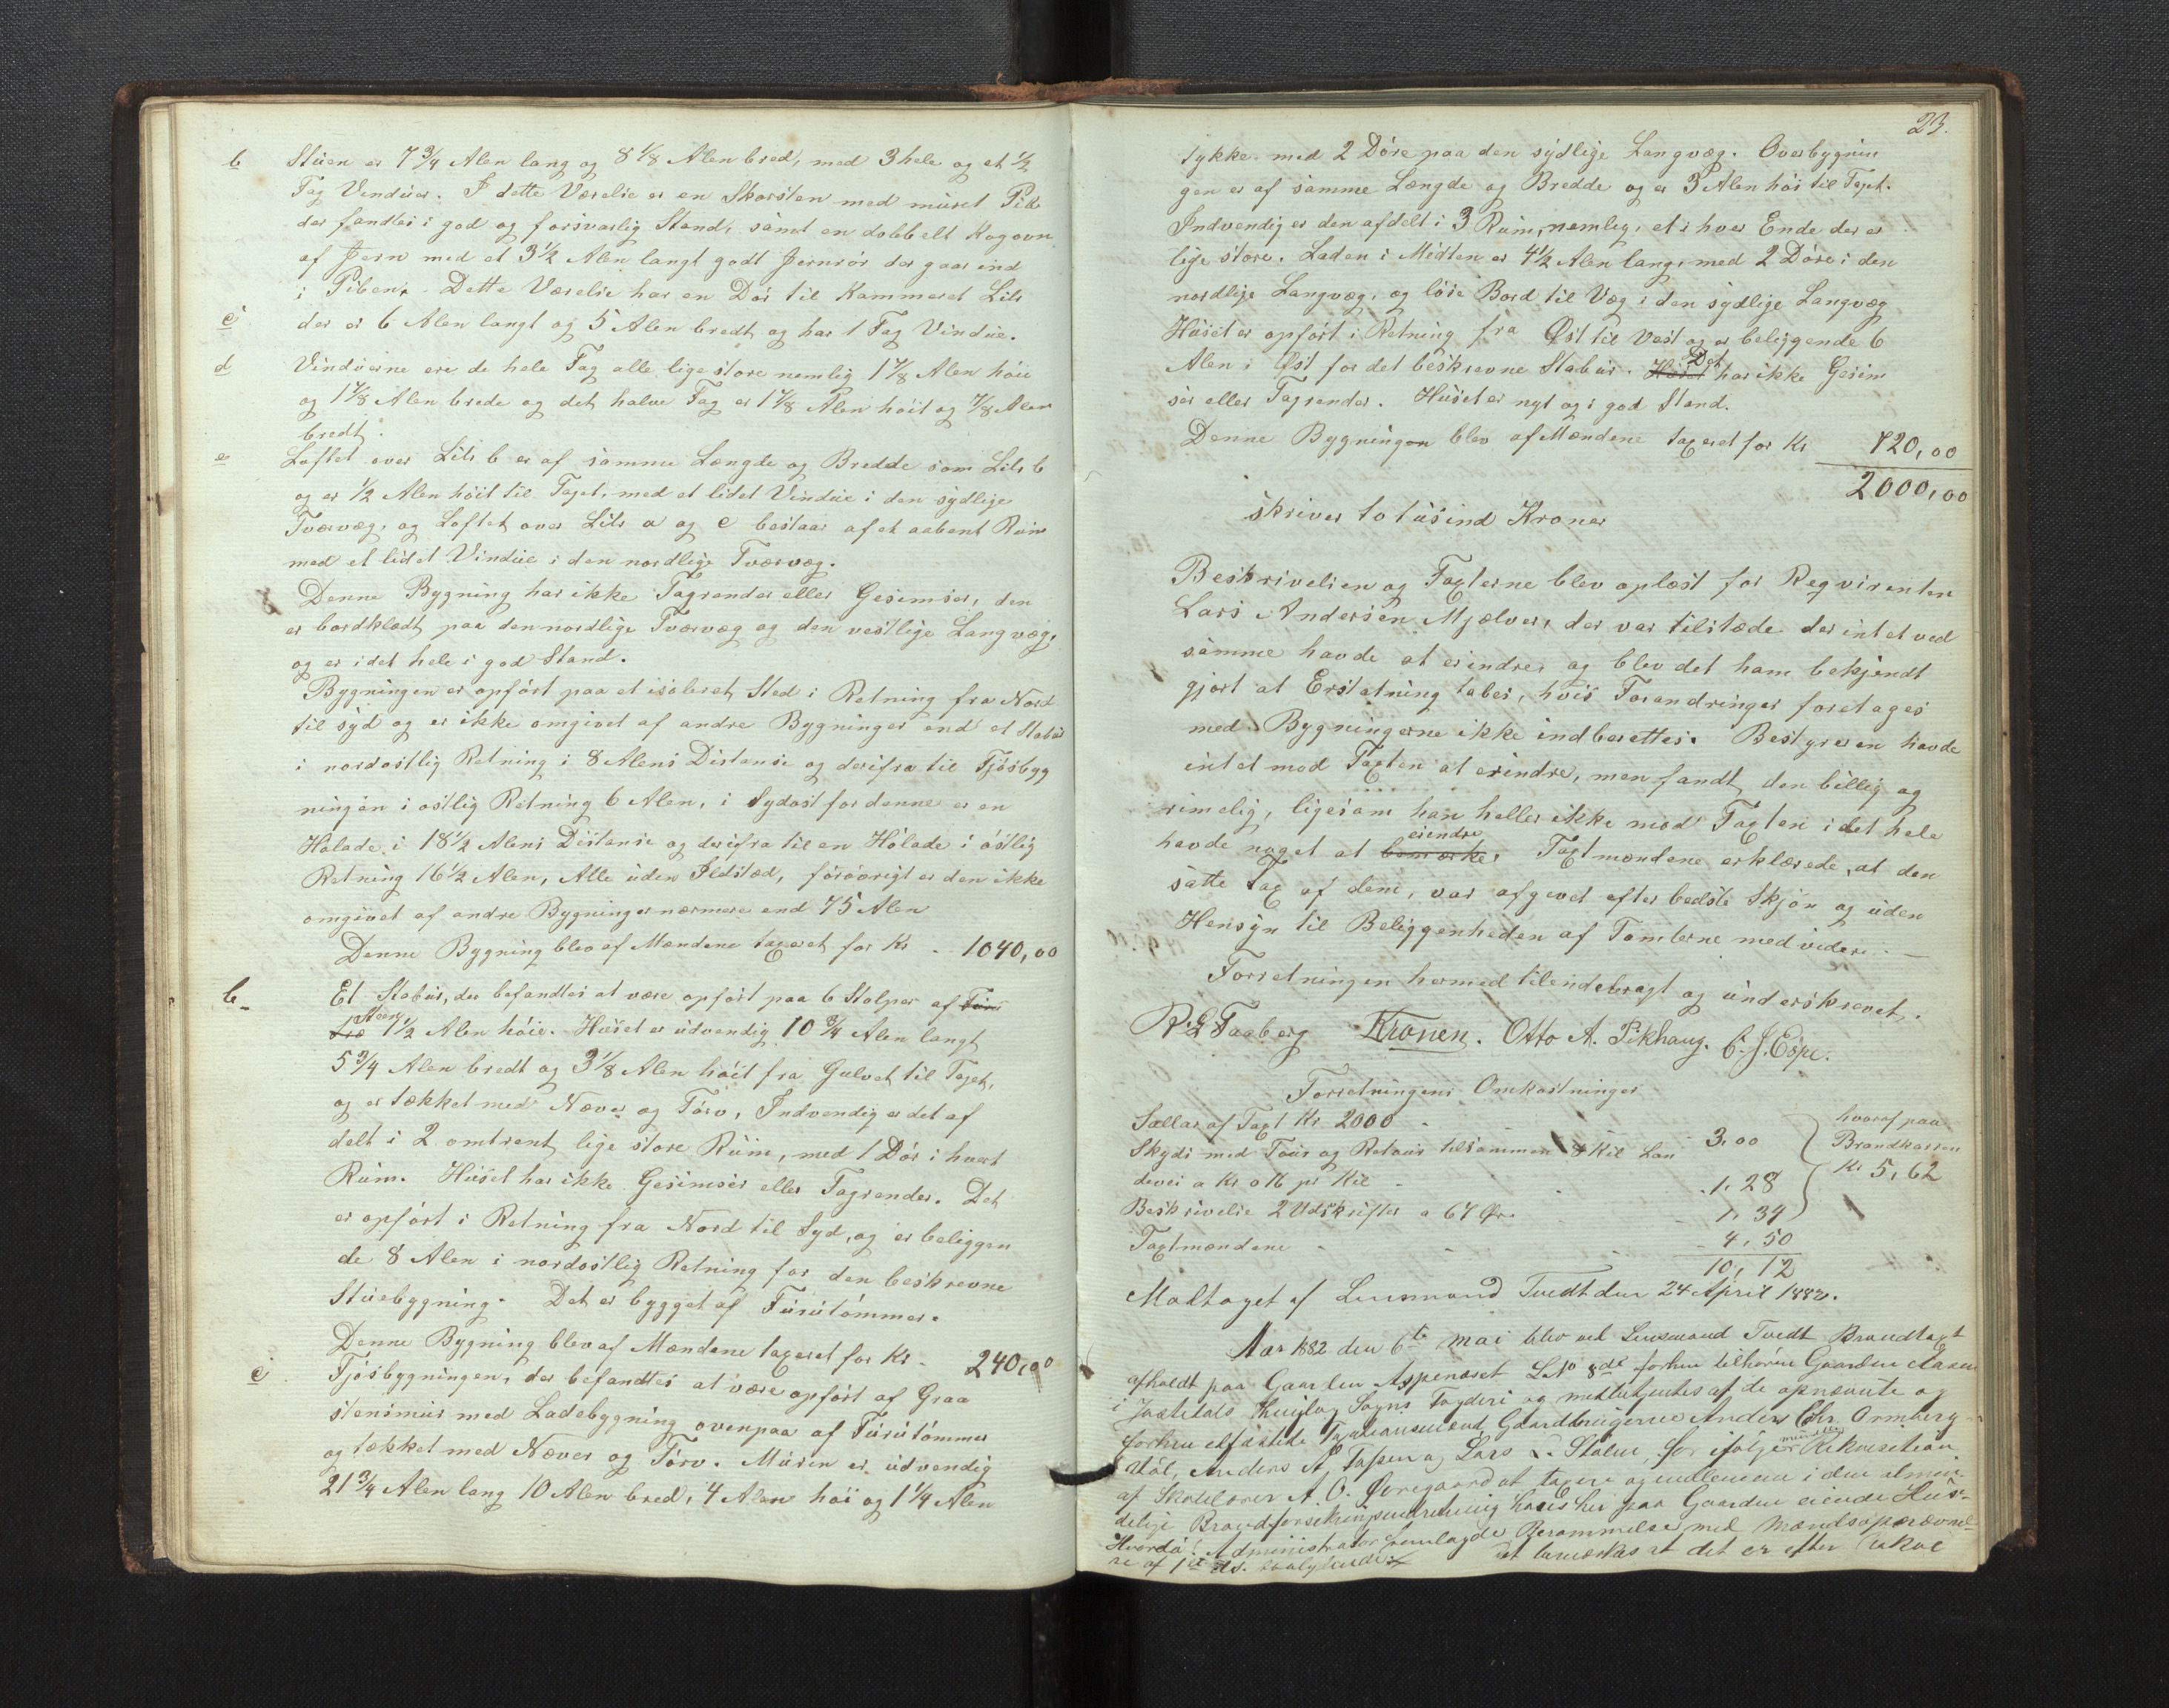 b Stuen er 7 3/4 Alen lang og 8 1/8 Alen bred, med 3 hele og et 1/2
Fag Vinduer. I dette Værelse er en Skorsten med muret Pibe
der fandtes i god og forsvarlig Stand, samt en dobbelt Kogovn
af Jern med et 3 1/2 Alen langt godt Jernrör der gaar ind
i Piben. - Dette Værelse har en Dör til Kammeret Litr
c der er 6 Alen langt og 5 Alen bredt og har 1 Fag Vindue.
d Vinduerne ere de hele Fag alle lige store nemlig 1 7/8 Alen höie
og 1 7/8 Alen brede og det halve Fag er 1 7/8 Alen höit og 7/8 Alen
bredt.
e Loftet over Litr b er af samme Længde og Bredde som Litr b
og er 1/2 Alen höit til Taget, med et lidet Vindue i den sydlige
Tværvæg, og Loftet over Litr a og c bestaar af et aabent Rum
med et lidet Vindue i den nordlige Tværvæg.
Denne Bygning har ikke Tagrender eller Gesimser, den
er bordklædt paa den nordlige Tværvæg og den vestlige Langvæg,
og er i det hele i god Stand.
Bygningen er opfört paa et isoleret Sted i Retning fra Nord
til syd og er ikke omgivet af andre Bygninger end et Stabur
i nordostlig Retning i 8 Alens Distanse og derifra til Fjösbyg
ningen i ostlig Retning 6 Alen, i Sydost for denne er en
Hölade i 18 1/2 Alens Distanse og derifra til en Hölade i östlig
Retning 16 1/2 Alen, Alle uden Ildsted, foröorigt er den ikke
omgivet af andre Bygninger nærmere end 75 Alen
Denne Bygning blev af Mændene taxeret for Kr - 1040,00
b- Et Stabur, der befandtes at være opfört paa 6 Stolper af Furu
træ Steen 1 1/2 Alen höie. Huset er udvendig 10 3/4 Alen langt
5 3/4 Alen bredt og 3 1/8 Alen höit fra Gulvet til Taget,
og er tækket med Næver og Törv, Indvendig er det af
delt i 2 omtrent lige store Rum, med 1 Dör i hvert
Rum. Huset har ikke Gesimser eller Tagrender. Det
er opfört i Retning fra Nord til Syd, og er beliggen
de 8 Alen i nordostlig Retning for den beskrevne
Stuebygning. Det er bygget af Furutömmer.
Denne Bygning blev af Mændene taxeret for Kr - 240,00
c Fjösbygningen, der befandtes at være opfört af Graa
stensmur med Ladebygning ovenpaa af Furutömmer
og tækket med Næver og Törv. Muren er udvendig
21 3/4 Alen lang 10 Alen bred, 4 Alen höi og 1 1/4 Alen
23.
tykke med 2 Döre paa den sydlige Langvæg. Overbygnin
gen er af samme Længde og Bredde og er 3 Alen höi til Taget.
Indvendig er den afdelt i 3 Rum, nemlig, et i hver Ende der er
lige store. Laden i Midten er 4 1/2 Alen lang, med 2 Döre i den
nordlige Langvæg, og löse Bord til Væg i den sydlige Langvæg
Huset er opfört i Retning fra Öst til Vest og er beliggende 6
Alen i Öst for det beskrevne Stabur. Huset Det har ikke Gesim
ser eller Tagrender. Huset er nyt og i god Stand.
Denne Bygningen blev af Mændene taxeret for Kr 720,00
2000,00
skriver to tusind Kroner
Beskrivelsen og Taxterne blev oplæst for Reqvirenten
Lars Andersen Mjælver, der var tilstæde der intet ved
samme havde at erindre, og blev det ham bekjendt
gjort at Erstatning tabes, hvis Forandringer foretages
med Bygningerne ikke indberettes. Bestyreren havde
intet mod Taxten at erindre, men fandt den billig og
rimelig, ligesom han heller ikke mod Taxten i det hele
havde noget at bemærke. erindre Taxtmændene erklærede, at den
satte Tax af dem, var afgivet efter bedste Skjön og uden
Hensyn til Beliggenheden af Tomterne med videre. -
Forretningen hermed tilendebragt og underskrevet.
R. L Faaberg Kronen. Otto A. Pikhaug. C. J. Espe.
Forretningens Omkostninger
Sallar af Taxt Kr 2000 - 3,00
Skyds med Tour og Retour tilsammen 8 Kil Lan
devei a Kr 016 pr Kil - 1,28
Beskrivelse 2 Udskrifter a 67 Öre - 1,34
hvoraf paa
Brandkassen
Kr 5,62
Taxtmændene - 4,50
10,12
Modtaget af Lensmand Tvedt den 24 April 1882.
Aar 1882 den 6te Mai blev ved Lensmand Tvedt Brandtaxt
afholdt paa Gaarden Aspenæset LNo 8de
i Thinglag Sogns Fogderi og af de opnævnte og
forhen Gaardbrugerne Anders Chr. Ormberg
Anders A. og Lars L. ifølge mundtlig Rekvisition
af Skolelærer A. O. at taxere og indlemme i den almin
delige Brandforsikringsindretning hans her paa Gaarden eiende Huse.
Hvorda: Administrator fremlagde Berammelse med Mandsopnævnel
se af 1ste ds. saalydende: at bemærkes at det er efter